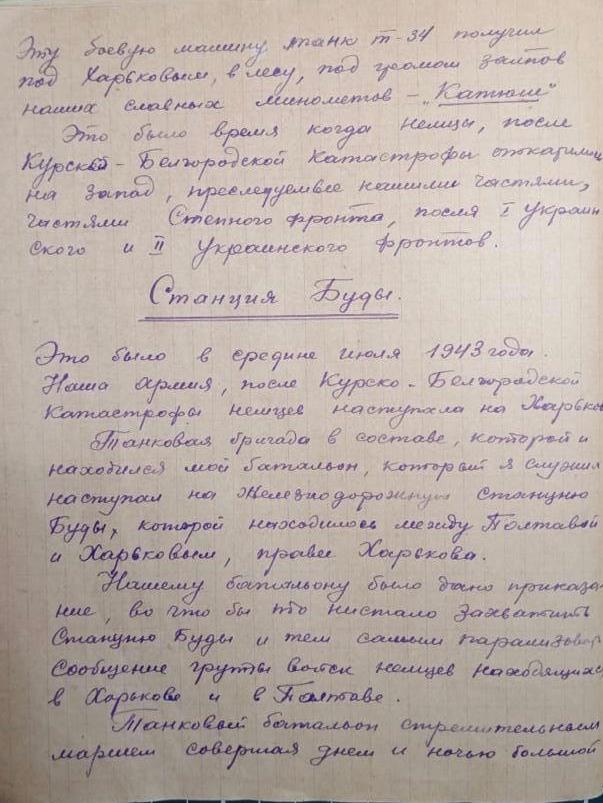 Эту боевую машину танк т-34 получил
под Харьковым, в лесу, под громом залпов
наших славных минометов - „Катюш"
Это было время когда немцы, после
Курской-Белгородской катастрофы откатились
на запад, преследуемые нашими частями,
частями Степного фронта, после I Украин
ского и II Украинского фронтов.
Станция Буды.
Это было в средине июля 1943 года.
Наша армия, после Курско-Белгородской
катастрофы немцев наступала на Харьков
Танковая бригада в составе, которой и
находился мой батальон, который я служил
наступал на железнодорожную станцию
Буды, которой находилось между Полтавой
и Харьковым, правее Харькова.
Нашему батальону было дано приказа-
ние, во что бы то нистало захватить
станцию Буды и тем самым парализоват
сообщение группы войск немцев находящихс
в Харькове и в Полтаве.
Танковый батальон стремительным
маршем совершая днем и ночью большой